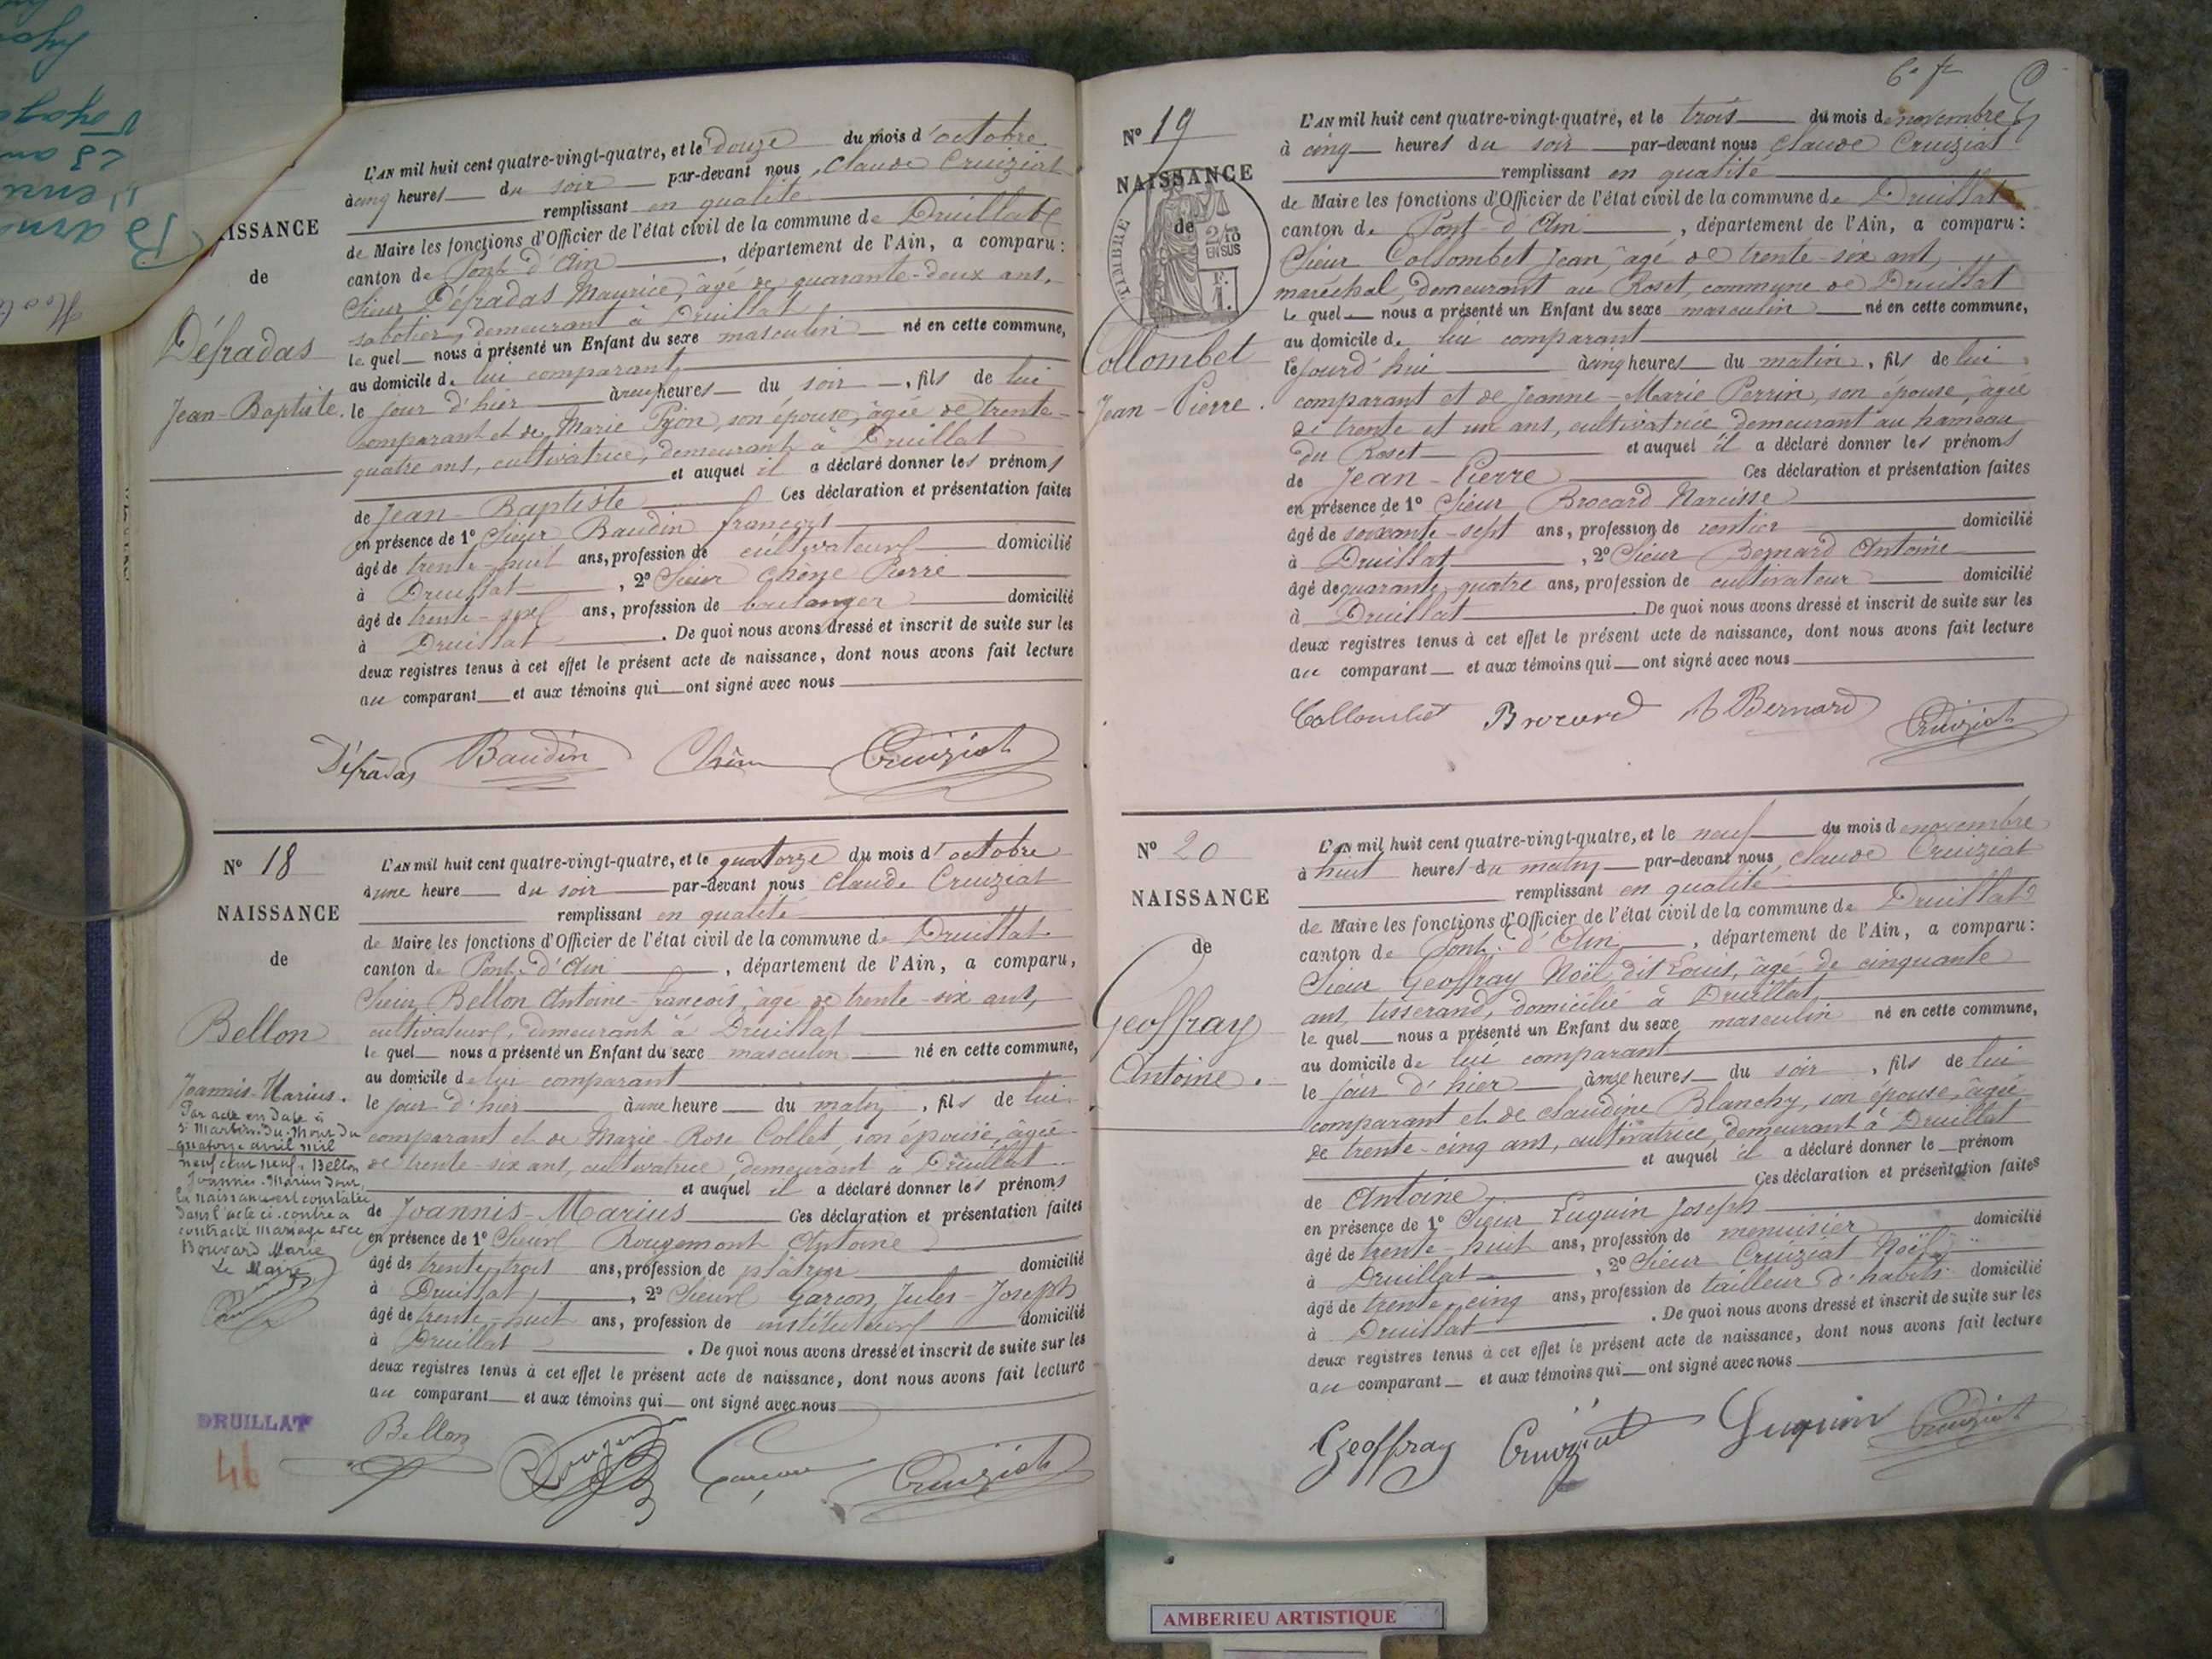 L'AN mil huit cent quatre-vingt-quatre, et le douze du mois d'octobre
à cinq heures du soir par-devant nous Claude Cruiziat
remplissant en qualité
de Maire les fonctions d'Officier de l'état civil de la commune de Druillat
canton de Pont-d'Ain, département de l'Ain, a comparu:
Sieur Défradas Maurice, âgé de quarante-deux ans,
sabotier, demeurant à Druillat
le quel nous a présenté un Enfant du sexe masculin né en cette commune,
au domicile de lui comparant
le jour d'hier heures du soir, fils de lui
comparant et de Marie son épouse, âgée de trente-
quatre ans, cultivatrice, demeurant à Druillat
et auquel il a déclaré donner les prénoms
de Jean-Baptiste Ces déclaration et présentation faites
en présence de 1º Sieur Baudin françois
âgé de trente-huit ans, profession de cultivateur domicilié
à Druillat, 2º Sieur Chêne Pierre
âgé de trente- ans, profession de boulanger domicilié
à Druillat. De quoi nous avons dressé et inscrit de suite sur les
deux registres tenus à cet effet le présent acte de naissance, dont nous avons fait lecture
au comparant et aux témoins qui ont signé avec nous
ISSANCE
de
Défradas
Jean-Baptiste.
Défradas Baudin Chêne Cruiziat
Nº 18
NAISSANCE
de
Bellon
Joannis-Marius.
Par acte en date à
St Martin-du-Mont du
quatorze avril mil
neuf cent neuf, Bellon
Joannis-Marius dont
la naissance est constatée
dans l'acte ci-contre a
contracté mariage avec
Bouvard Marie
Le Maire
L'AN mil huit cent quatre-vingt-quatre, et le quatorze du mois d'octobre
à une heure du soir par-devant nous Claude Cruiziat
remplissant en qualité
de Maire les fonctions d'Officier de l'état civil de la commune de Druillat
canton de Pont-d'Ain, département de l'Ain, a comparu,
Sieur Bellon Antoine-françois, âgé de trente-six ans,
cultivateur, demeurant à Druillat
le quel nous a présenté un Enfant du sexe masculin né en cette commune,
au domicile de lui comparant
le jour d'hier à une heure du matin, fils de lui
comparant et de Marie-Rose Collet, son épouse, âgée
de trente-six ans, cultivatrice, demeurant à Druillat
et auquel il a déclaré donner les prénoms
de Joannis-Marius Ces déclaration et présentation faites
en présence de 1º Sieur Rougemont Antoine
âgé de trente-trois ans, profession de plâtrier domicilié
à Druillat, 2º Sieur Garçon Jules-Joseph
âgé de trente-huit ans, profession de instituteur domicilié
à Druillat. De quoi nous avons dressé et inscrit de suite sur les
deux registres tenus à cet effet le présent acte de naissance, dont nous avons fait lecture
au comparant et aux témoins qui ont signé avec nous
DRUILLAT
46
Bellon Garçon Cruiziat
6e
Nº 19
NAISSANCE
de
TIMBRE
2/10
EN SUS
Collombet
Jean-Pierre.
L'AN mil huit cent quatre-vingt-quatre, et le trois du mois de novembre
à cinq heures du soir par-devant nous Claude Cruiziat
remplissant en qualité
de Maire les fonctions d'Officier de l'état civil de la commune de Druillat
canton de Pont-d'Ain, département de l'Ain, a comparu:
Sieur Collombet Jean, âgé de trente-six ans,
maréchal, demeurant au Roset, commune de Druillat
le quel nous a présenté un Enfant du sexe masculin né en cette commune,
au domicile de lui comparant
cejourd'hui à cinq heures du matin, fils de lui
comparant et de Jeanne-Marie Perrin, son épouse, âgée
de trente et un ans, cultivatrice, demeurant au hameau
du Roset et auquel il a déclaré donner les prénoms
de Jean-Pierre Ces déclaration et présentation faites
en présence de 1º Sieur Brocard Narcisse
âgé de soixante-sept ans, profession de rentier domicilié
à Druillat, 2º Sieur Bernard Antoine
âgé de quarante-quatre ans, profession de cultivateur domicilié
à Druillat. De quoi nous avons dressé et inscrit de suite sur les
deux registres tenus à cet effet le présent acte de naissance, dont nous avons fait lecture
au comparant et aux témoins qui ont signé avec nous
Collombet Brocard A Bernard Cruiziat
Nº 20
NAISSANCE
de
Geoffray
Antoine.
L'AN mil huit cent quatre-vingt-quatre, et le neuf du mois de novembre
à huit heures du matin par-devant nous Claude Cruiziat
remplissant en qualité
de Maire les fonctions d'Officier de l'état civil de la commune de Druillat
canton de Pont-d'Ain, département de l'Ain, a comparu:
Sieur Geoffray Noël, dit Louis, âgé de cinquante
ans, tisserand, domicilié à Druillat
le quel nous a présenté un Enfant du sexe masculin né en cette commune,
au domicile de lui comparant
le jour d'hier à onze heures du soir, fils de lui
comparant et de Claudine Blanchy, son épouse, âgée
de trente-cinq ans, cultivatrice, demeurant à Druillat
et auquel il a déclaré donner le prénom
de Antoine Ces déclaration et présentation faites
en présence de 1º Sieur Luquin Joseph
âgé de trente-huit ans, profession de menuisier domicilié
à Druillat, 2º Sieur Cruiziat Noël
âgé de trente-cinq ans, profession de tailleur d'habits domicilié
à Druillat. De quoi nous avons dressé et inscrit de suite sur les
deux registres tenus à cet effet le présent acte de naissance, dont nous avons fait lecture
au comparant et aux témoins qui ont signé avec nous
Geoffray Cruiziat Luquin Cruiziat
AMBERIEU ARTISTIQUE